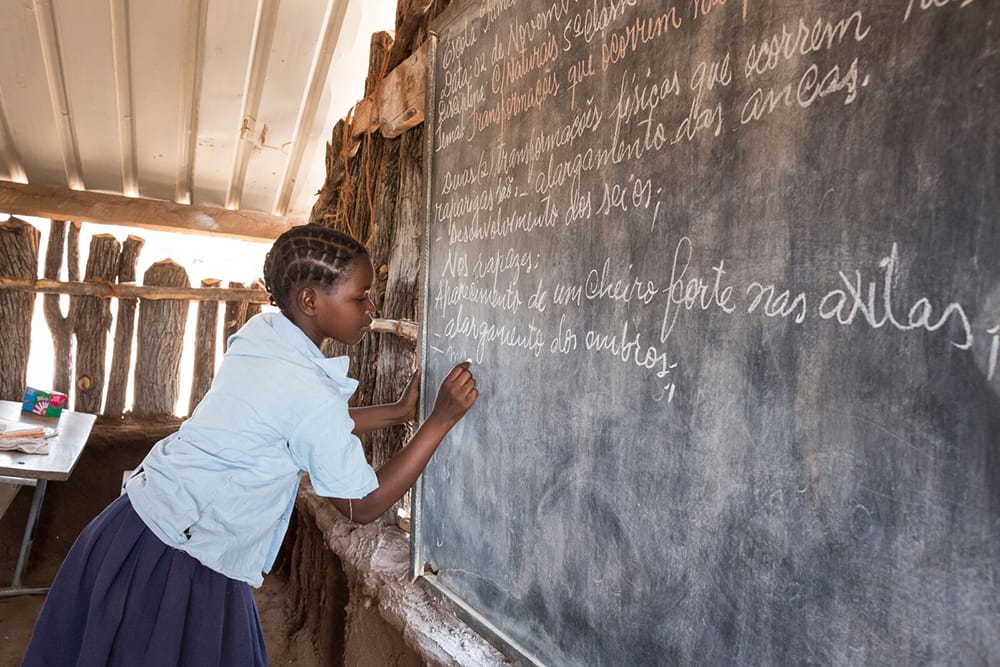 Data: 02 de Novembro
Disciplina: C/Naturais 5ª classe
Tema: Transformações que ocorrem na
Duas 2 transformações físicas que ocorrem nas
raparigas são: - alargamento das ancas.
- Desenvolvimento dos seios;
Nos rapazes;
Aparecimento de um cheiro forte nas axilas,
- alargamento dos ombros;
- m